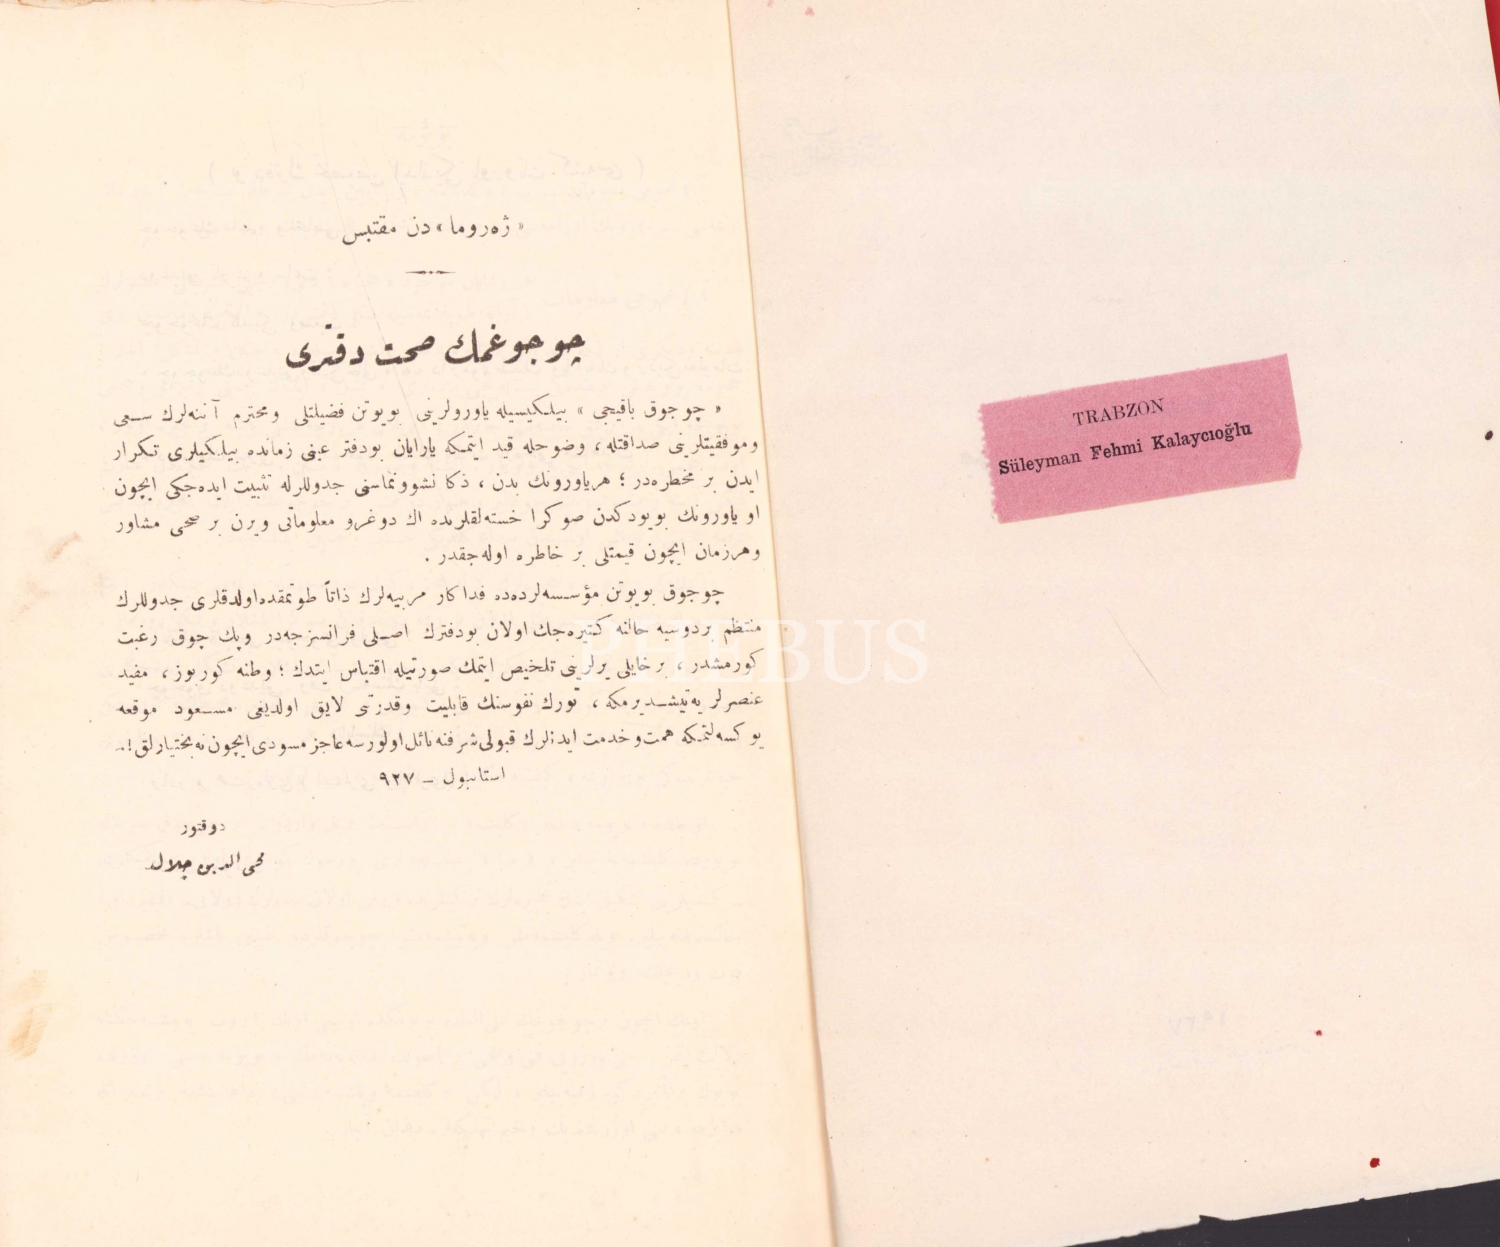 « ژەروما » دن مقتبس
چوجوغمك صحت دفتری
« چوجوق باقیجی » بیلكیسیله یاورولرینی بویوتن فضیلتلی ومحترم آننەلرك سعی
وموفقیتلرینی صداقتله ، وضوحله قید ایتمكه یارایان بودفتر عینی زمانده بیلكیلری تكرار
ایدن بر مخطرەدر ؛ هریاورونك بدن ، ذكا نشوونماسنی جدوللرله تثبیت ایدەجكی ایچون
او یاورونك بویودكدن صوكرا خستەلقلرنده اك دوغرو معلوماتی ویرن بر صحی مشاور
وهرزمان ایچون قیمتلی بر خاطره اولەجقدر .
چوجوق بویوتن مؤسسەلردەده فداكار مربیەلرك ذاتاً طوتمقده اولدقلری جدوللرك
منتظم بردوسیه حالنه كتیرەجك اولان بودفترك اصلی فرانسزجەدر وپك چوق رغبت
كورمشدر ، برخایلی یرلرینی تلخیص ایتمك صورتیله اقتباس ایتدك ؛ وطنه كوربوز ، مفید
عنصرلر یەتیشدیرمكه ، تورك نفوسنك قابلیت وقدرتی لایق اولدیغی مسعود موقعه
یوكسەلتمكه همت وخدمت ایدنلرك قبولی شرفنه نائل اولورسه عاجز مسودی ایچون نه بختیارلق !..
استانبول – ٩٢٧
دوقتور
محی الدین جلال
TRABZON
Süleyman Fehmi Kalaycıoğlu
PHEBUS